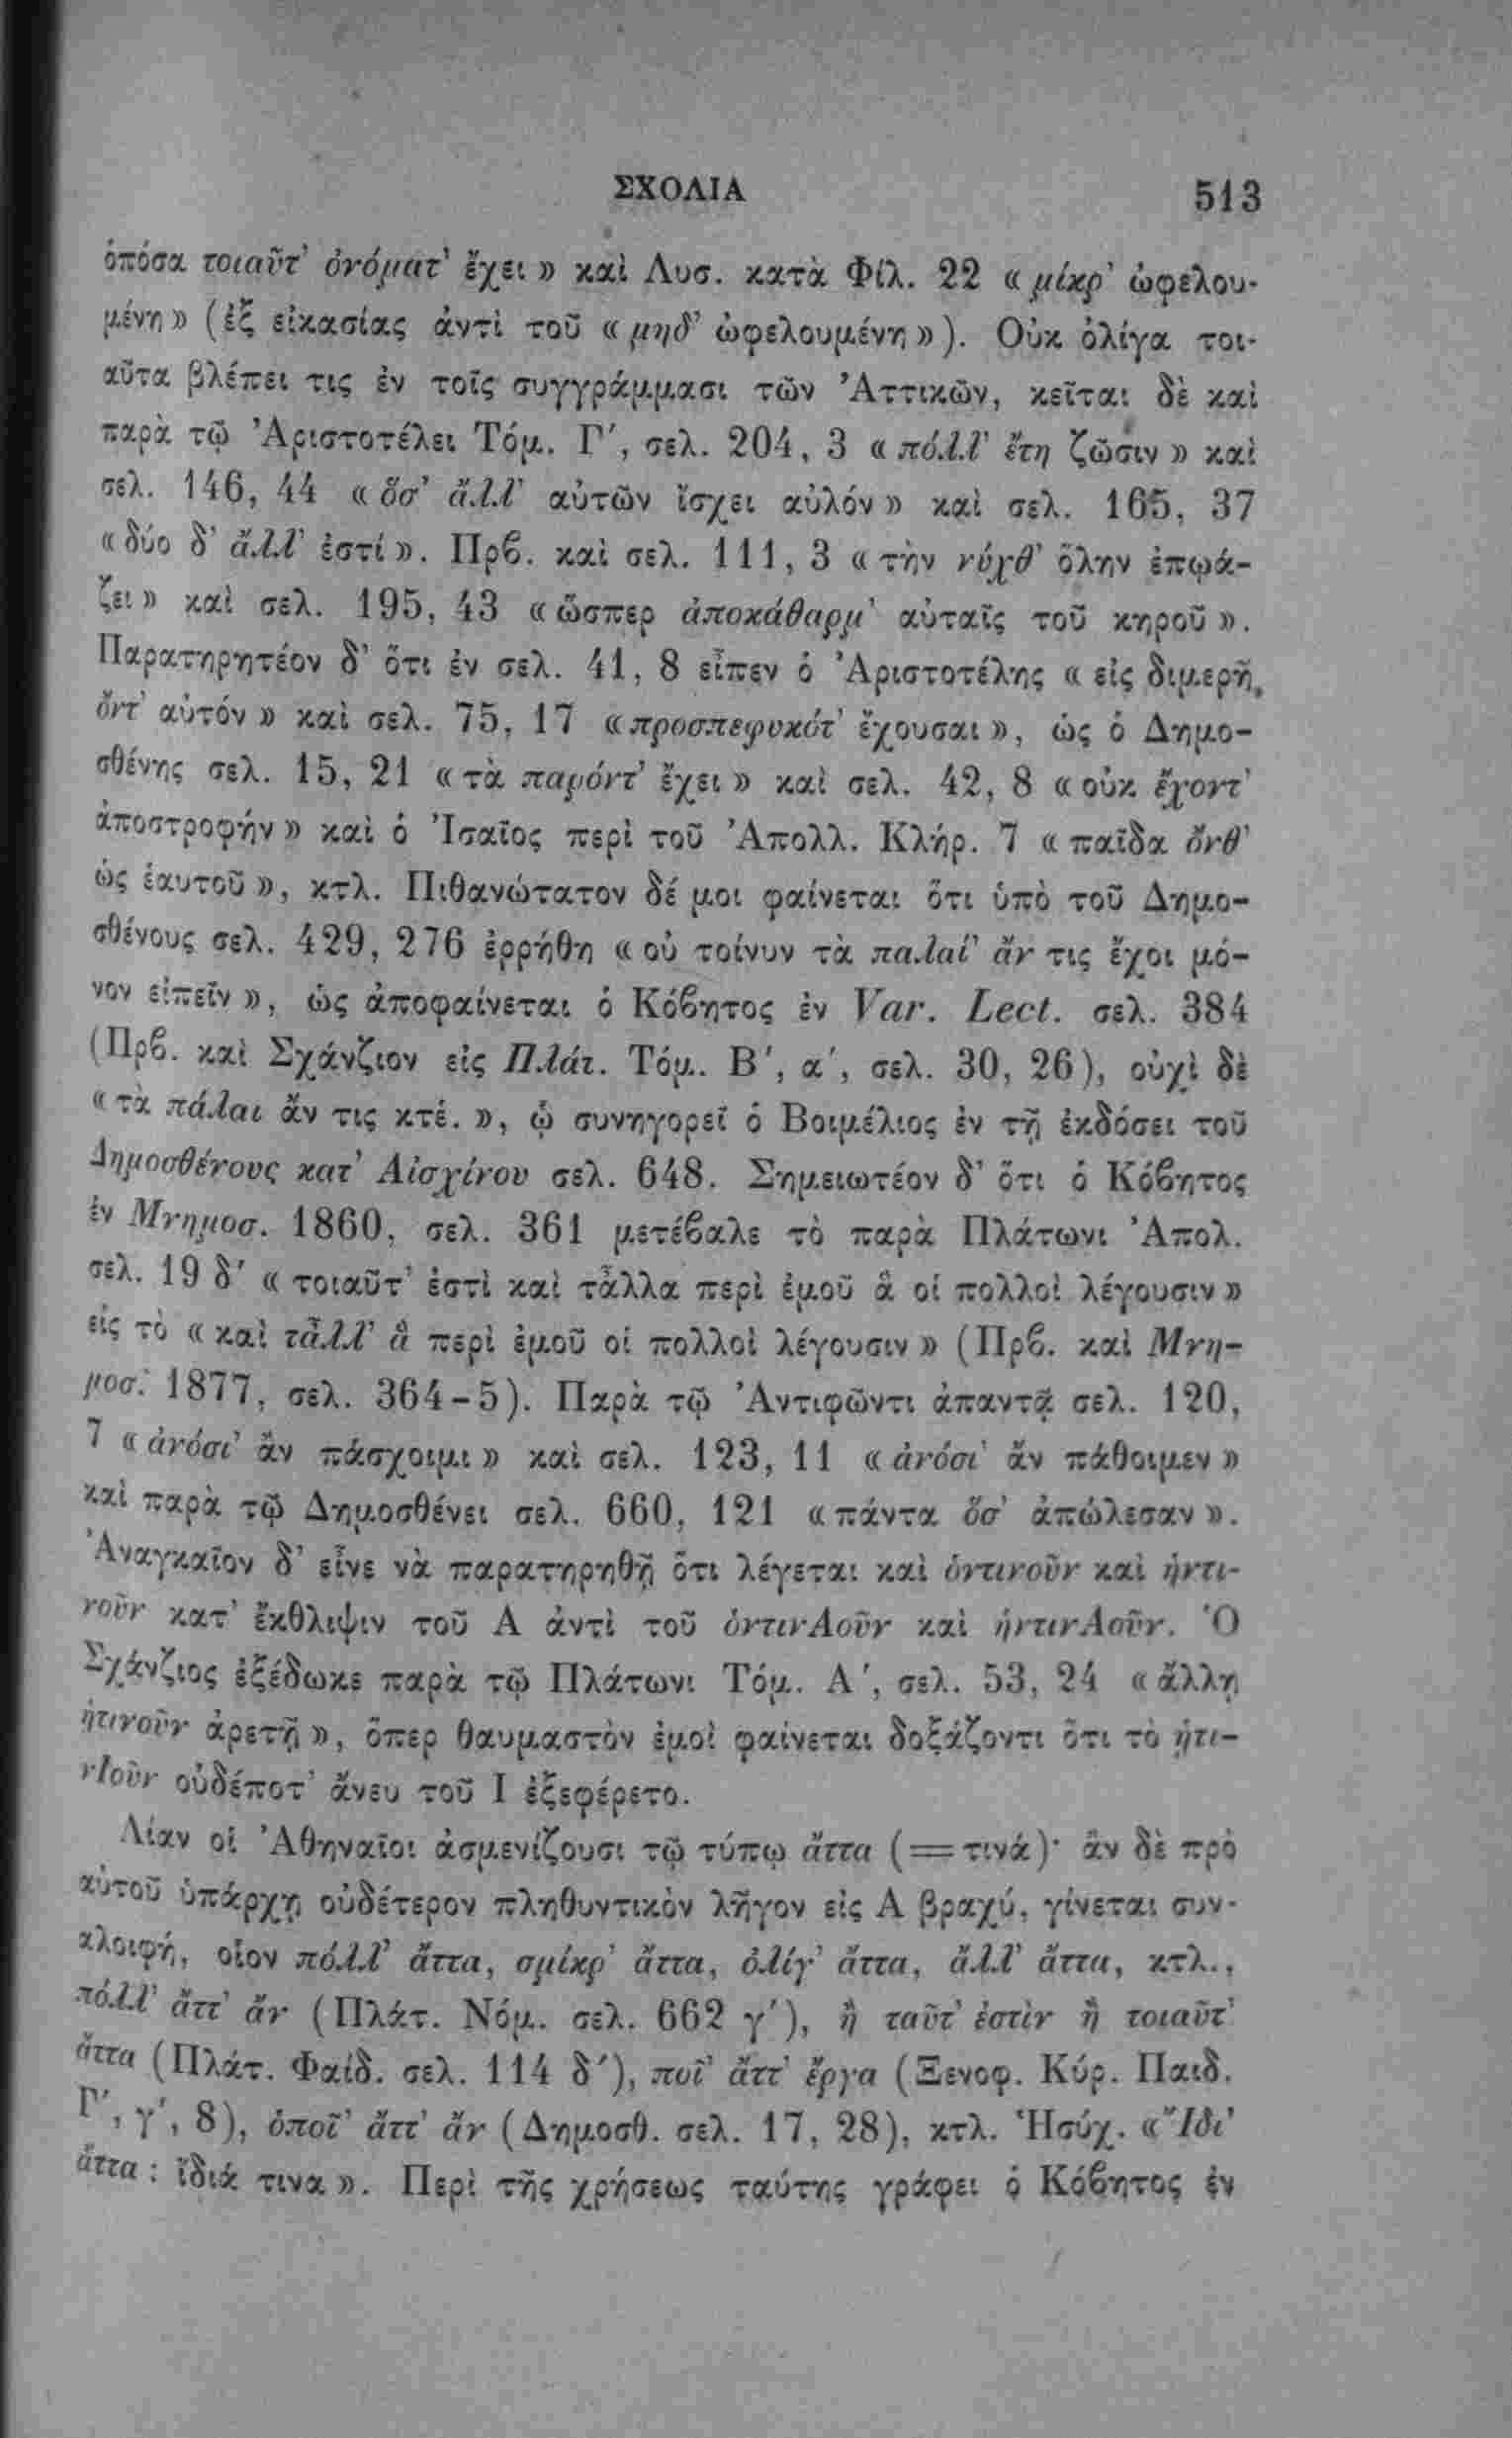 ΣΧΟΛΙΑ 513
ὁπόσα τοιαῦτ' ὀνόματ' ἔχει » καὶ Λυσ. κατὰ Φίλ. 22 « μίκρ' ὠφελου-
μένη » (ἐξ εἰκασίας ἀντὶ τοῦ « μηδ' ὠφελουμένη »). Οὐκ ὀλίγα τοι-
αῦτα βλέπει τις ἐν τοῖς συγγράμμασι τῶν Ἀττικῶν, κεῖται δὲ καὶ
παρὰ τῷ Ἀριστοτέλει Τόμ. Γ', σελ. 204, 3 « πόλλ' ἔτη ζῶσιν » καὶ
σελ. 146, 44 « ὅσ' ἄλλ' αὐτῶν ἴσχει αὐλόν » καὶ σελ. 165, 37
« δύο δ' ἄλλ' ἐστί ». Πρβ. καὶ σελ. 111, 3 « τὴν νύχθ' ὅλην ἐπῳά-
ζει » καὶ σελ. 195, 43 « ὥσπερ ἀποκάθαρμ' αὐταῖς τοῦ κηροῦ ».
Παρατηρητέον δ' ὅτι ἐν σελ. 41, 8 εἶπεν ὁ Ἀριστοτέλης « εἰς διμερῆ
ὄντ' αὐτόν » καὶ σελ. 75, 17 « προσπεφυκότ' ἔχουσαι », ὡς ὁ Δημο-
σθένης σελ. 15, 21 « τὰ παρόντ' ἔχει » καὶ σελ. 42, 8 « οὐκ ἔχοντ'
ἀποστροφήν » καὶ ὁ Ἰσαῖος περὶ τοῦ Ἀπολλ. Κλήρ. 7 « παῖδα ὄνθ'
ὡς ἑαυτοῦ », κτλ. Πιθανώτατον δέ μοι φαίνεται ὅτι ὑπὸ τοῦ Δημο-
σθένους σελ. 429, 276 ἐρρήθη « οὐ τοίνυν τὰ παλαί' ἄν τις ἔχοι μό-
νον εἰπεῖν », ὡς ἀποφαίνεται ὁ Κόβητος ἐν Var. Lect. σελ. 384
(Πρβ. καὶ Σχάνζιον εἰς Πλάτ. Τόμ. Β', α', σελ. 30, 26), οὐχὶ δὲ
« τὰ πάλαι ἄν τις κτέ. », ᾧ συνηγορεῖ ὁ Βοιμέλιος ἐν τῇ ἐκδόσει τοῦ
Δημοσθένους κατ' Αἰσχίνου σελ. 648. Σημειωτέον δ' ὅτι ὁ Κόβητος
ἐν Μνημοσ. 1860, σελ. 361 μετέβαλε τὸ παρὰ Πλάτωνι Ἀπολ.
σελ. 19 δ' « τοιαῦτ' ἐστὶ καὶ τἆλλα περὶ ἐμοῦ ἃ οἱ πολλοὶ λέγουσιν »
εἰς τὸ « καὶ τἆλλ' ἃ περὶ ἐμοῦ οἱ πολλοὶ λέγουσιν » (Πρβ. καὶ Μνη-
μοσ. 1877, σελ. 364-5). Παρὰ τῷ Ἀντιφῶντι ἀπαντᾷ σελ. 120,
7 « ἀνόσι' ἂν πάσχοιμι » καὶ σελ. 123, 11 « ἀνόσι' ἂν πάθοιμεν »
καὶ παρὰ τῷ Δημοσθένει σελ. 660, 121 « πάντα ὅσ' ἀπώλεσαν ».
Ἀναγκαῖον δ' εἶνε νὰ παρατηρηθῇ ὅτι λέγεται καὶ ὁντινοῦν καὶ ἡντι-
νοῦν κατ' ἔκθλιψιν τοῦ Α ἀντὶ τοῦ ὁντινΑοῦν καὶ ἡντινΑοῦν. Ὁ
Σχάνζιος ἐξέδωκε παρὰ τῷ Πλάτωνι Τόμ. Α', σελ. 53, 24 « ἄλλῃ
ᾑτινοῦν ἀρετῇ », ὅπερ θαυμαστὸν ἐμοὶ φαίνεται δοξάζοντι ὅτι τὸ ᾑτι-
νΙοῦν οὐδέποτ' ἄνευ τοῦ Ι ἐξεφέρετο.
Λίαν οἱ Ἀθηναῖοι ἀσμενίζουσι τῷ τύπῳ ἄττα (=τινά)· ἂν δὲ πρὸ
αὐτοῦ ὑπάρχῃ οὐδέτερον πληθυντικὸν λῆγον εἰς Α βραχύ, γίνεται συν-
αλοιφή, οἷον πόλλ' ἄττα, σμίκρ' ἄττα, ὀλίγ' ἄττα, ἄλλ' ἄττα, κτλ.,
πόλλ' ἄττ' ἄν (Πλάτ. Νόμ. σελ. 662 γ'), ἢ ταῦτ' ἐστὶν ἢ τοιαῦτ'
ἄττα (Πλάτ. Φαίδ. σελ. 114 δ'), ποῖ' ἄττ' ἔργα (Ξενοφ. Κύρ. Παιδ.
Γ', γ', 8), ὁποῖ' ἄττ' ἄν (Δημοσθ. σελ. 17, 28), κτλ. Ἡσύχ. « Ἴδι'
ἄττα : ἴδιά τινα ». Περὶ τῆς χρήσεως ταύτης γράφει ὁ Κόβητος ἐν